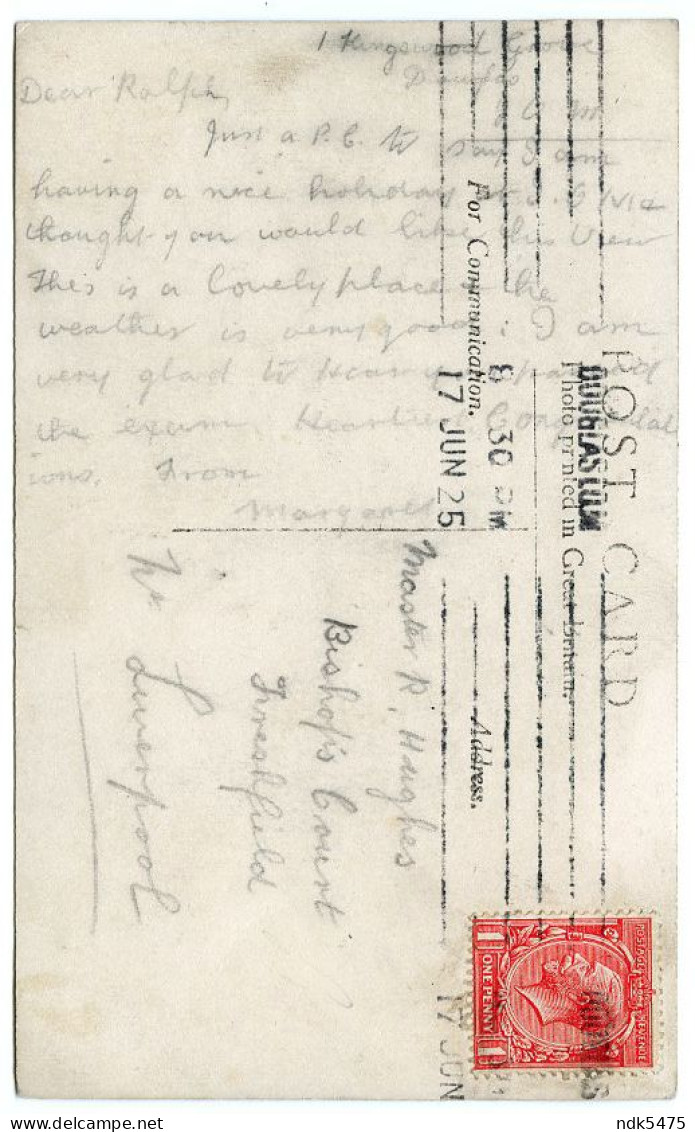 1 Kingswood Grove
Douglas
I O M
Dear Ralph,
Just a P.C. to say I am
having a nice holiday
thought you would like this view
This is a lovely place & the
weather is very good. I am
very glad to hear
the exam. Heartiest Congratulat
ions. From
Margaret
POST CARD
Photo printed in Great Britain.
For Communication.
Address.
DOUGLAS I.O.M
8 30 PM
17 JUN 25
Master R. Hughes
Bishop's Court
Freshfield
Nr Liverpool
POSTAGE REVENUE
ONE PENNY
1 1
17 JUN
ndk5475